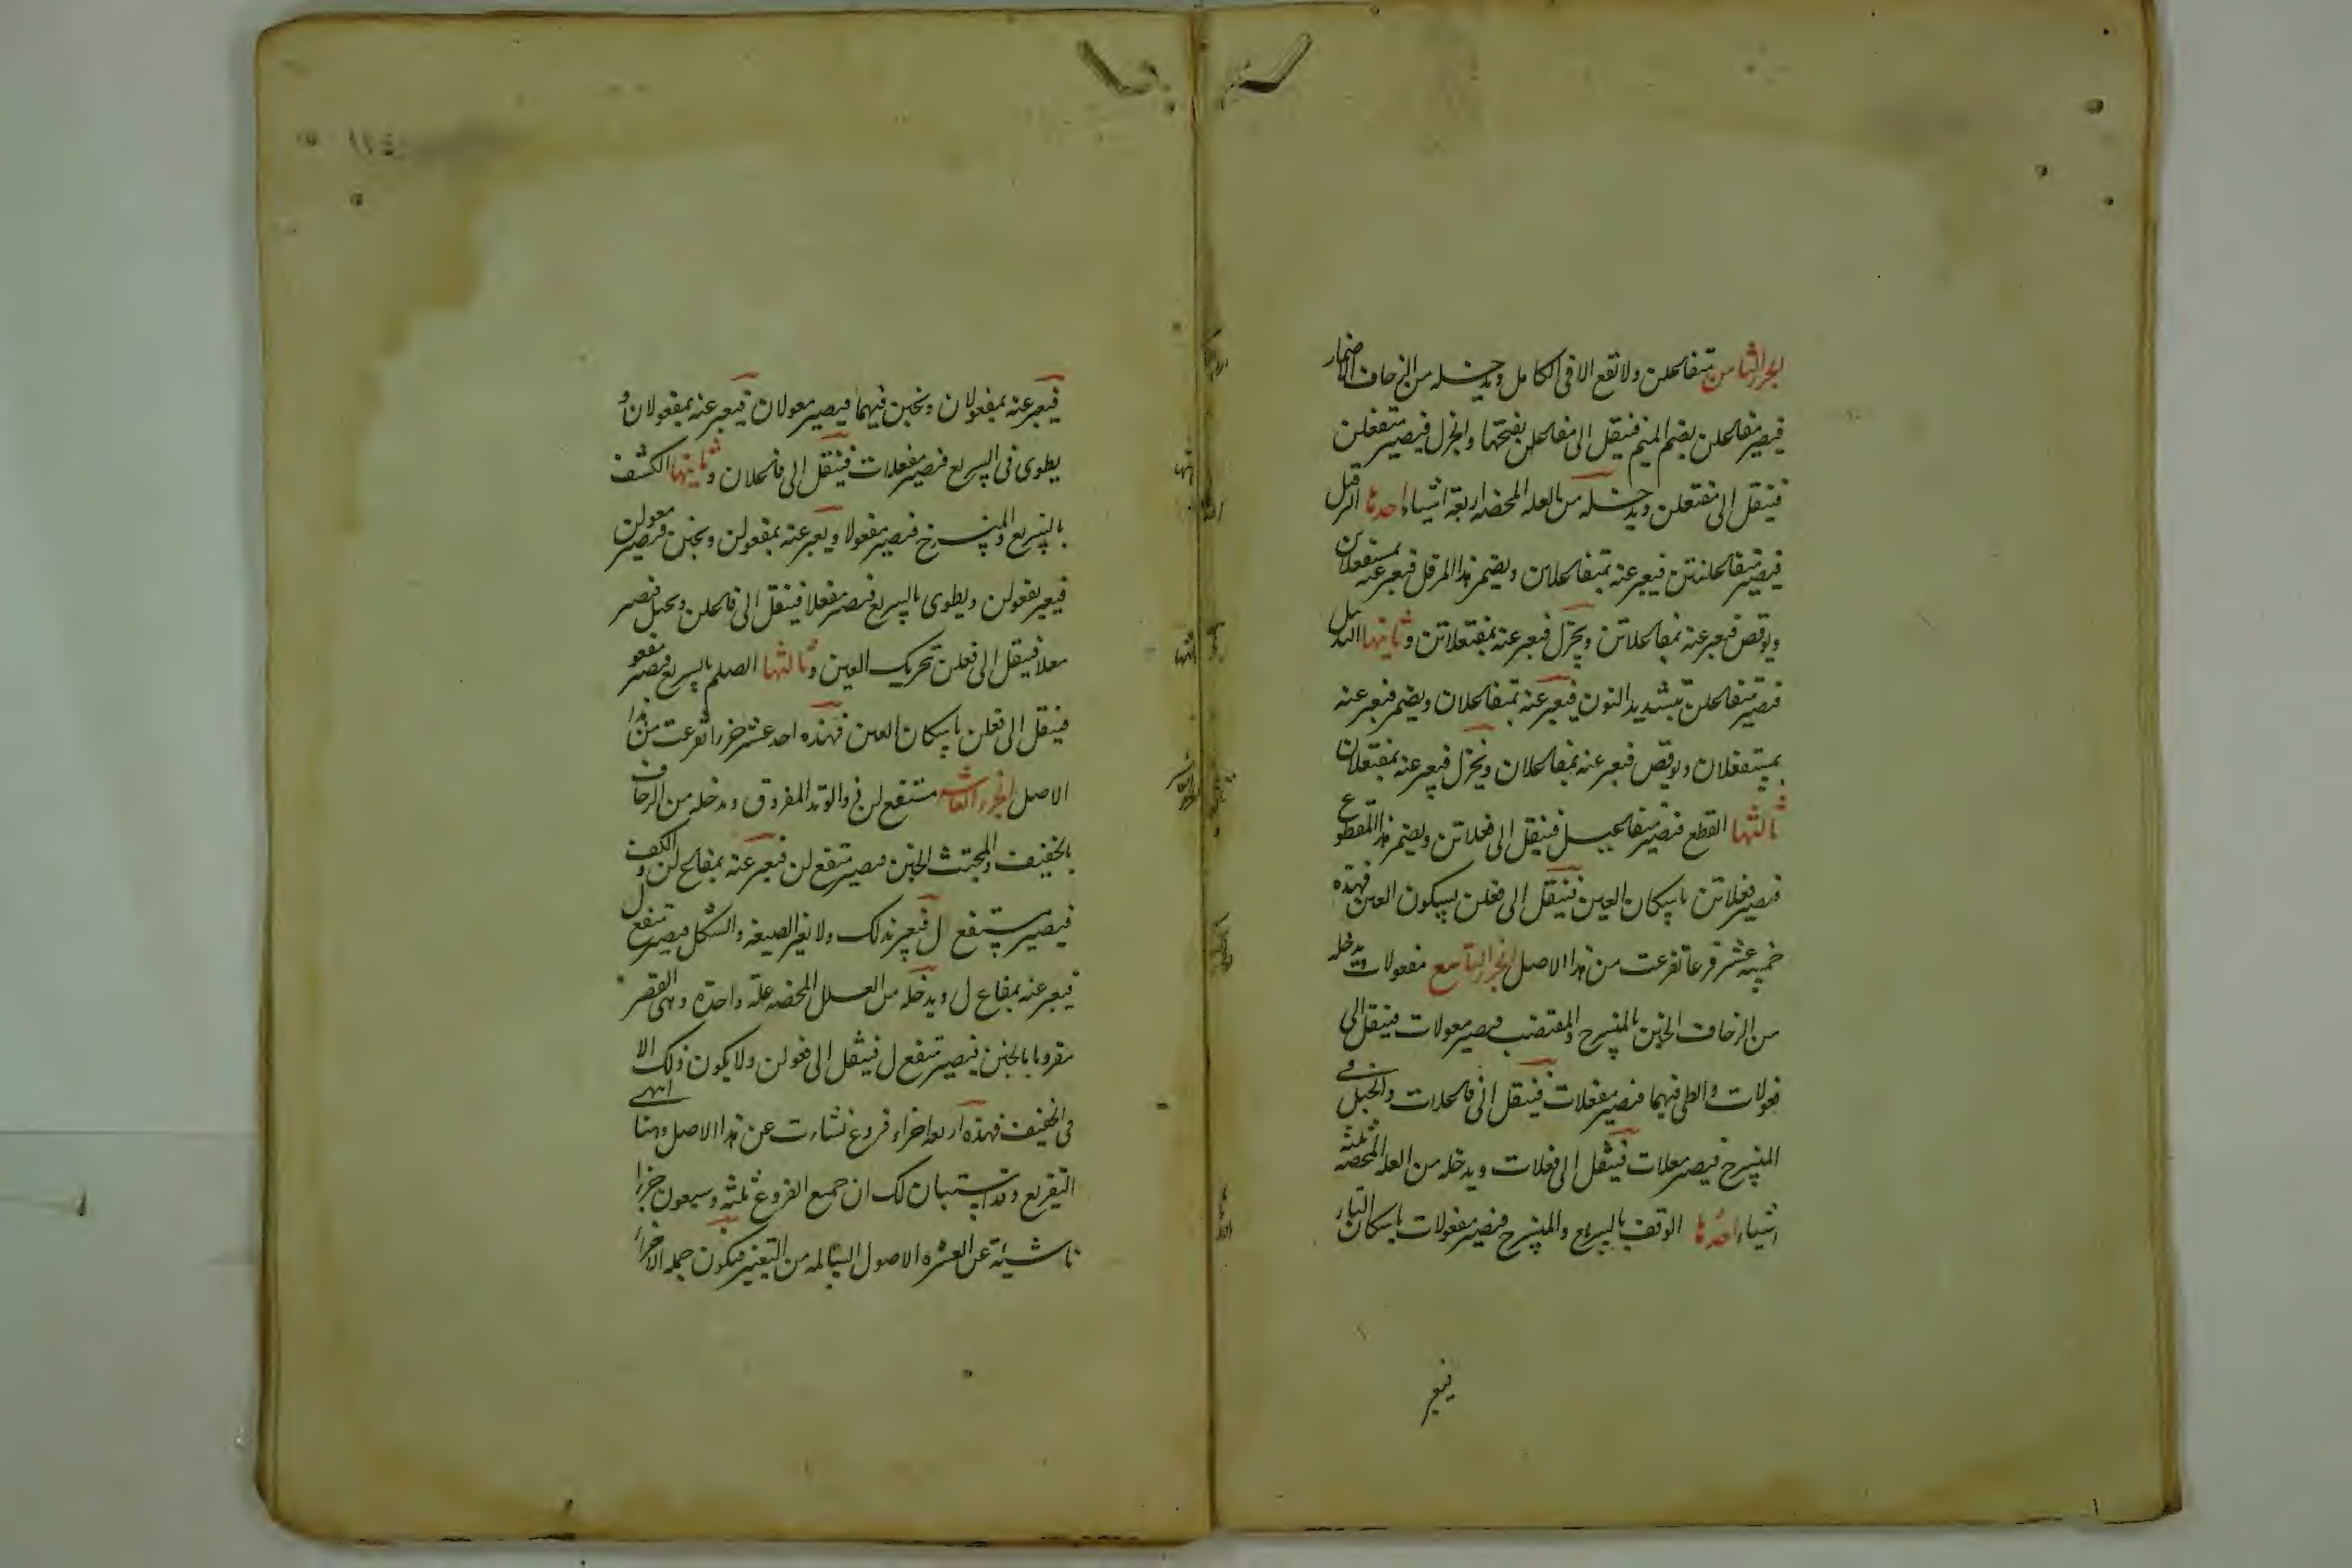 الجزء الثامن متفاعلن ولا تقع الا في الكامل ويدخله من الزحاف الاضمار
فيصير متفاعلن بضم الميم فينقل الى مفاعلن بفتحها والخزل فيصير متفعلن
فينقل الى مفتعلن ويدخله من العلة المحضه اربعة اشياء احدها الترفيل
فيصير متفاعلنتن فيعبر عنه بمتفاعلاتن ويضمر هذا المرفل فيعبر عنه بمستفعلاتن
ويوقص فيعبر عنه بمفاعلاتن ويخزل فيعبر عنه بمفتعلاتن وثانيها التذييل
فيصير متفاعلن بتشديد النون فيعبر عنه بمتفاعلان ويضمر فيعبر عنه
بمستفعلان ويوقص فيعبر عنه بمفاعلان ويخزل فيعبر عنه بمفتعلان
ثالثها القطع فيصير متفاعل فينقل الى فعلاتن ويضمر هذا المقطوع
فيصير فعلاتن باسكان العين فينقل الى فعلن بسكون العين فهذه
خمسة عشر فرعا تفرعت من هذا الاصل الجزء التاسع مفعولات ويدخله
من الزحاف الخبن بالمنسرح والمقتضب فيصير معولات فينقل الى
فعولات والطي فيهما فيصير مفعلات فينقل الى فاعلات والخبل في
المنسرح فيصير معلات فينقل الى فعلات ويدخله من العلة المحضة ثلثة
اشياء احدها الوقف بالسريع والمنسرح فيصير مفعولات باسكان التاء
فيعبر
فيعبر عنه بمفعولان ويخبن فيهما فيصير معولان فيعبر عنه بمفعولان و
يطوى في السريع فيصير مفعلات فينقل الى فاعلان وثانيها الكشف
بالسريع والمنسرح فيصير مفعولا ويعبر عنه بمفعولن ويخبن فيصير معولن
فيعبر بفعولن ويطوى بالسريع فيصير مفعلا فينقل الى فاعلن ويخبل فيصير
معلا فينقل الى فعلن بتحريك العين وثالثها الصلم بالسريع فيصير مفعو
فينقل الى فعلن باسكان العين فهذه احد عشر جزءا تفرعت من هذا
الاصل الجزء العاشر مستفع لن ذو الوتد المفروق ويدخله من الزحاف
بالخفيف والمجتث الخبن فيصير متفع لن فيعبر عنه بمفاع لن والكف
فيصير مستفع ل فيعبر بذلك ولا تغير الصيغة والشكل فيصير متفع ل
فيعبر عنه بمفاع ل ويدخله من العلل المحضه علة واحدة وهى القصر
مقرونا بالخبن فيصير متفع ل فينقل الى فعولن ولا يكون ذلك الا
في الخفيف فهذه اربعة اجزاء فروع نشاءت عن هذا الاصل وهنا انتهى
التفريع وقد استبان لك ان جميع الفروع ثلثة وسبعون جزءا
ناشئة عن العشرة الاصول السالمه من التغيير فيكون جملة الاجزاء